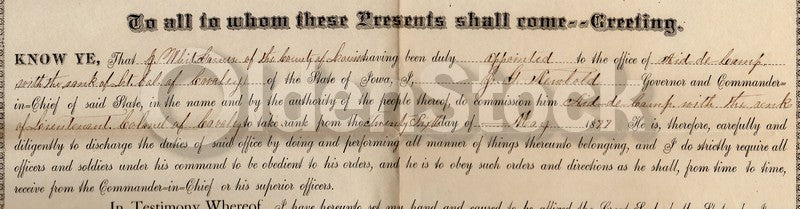 To all to whom these Presents shall come--Greeting.
KNOW YE, That J. Whit of the County of having been duly appointed to the office of Aid-de-Camp
with the rank of Lt. Col. of Cavalry of the State of Iowa, I, J. G. Newbold Governor and Commander=
in=Chief of said State, in the name and by the authority of the people thereof, do commission him Aid-de-Camp with the rank
of Lieutenant Colonel of Cavalry to take rank from the day of May 1877 He is, therefore, carefully and
diligently to discharge the duties of said office by doing and performing all manner of things thereunto belonging, and I do strictly require all
officers and soldiers under his command to be obedient to his orders, and he is to obey such orders and directions as he shall, from time to time,
receive from the Commander=in=Chief or his superior officers.
In Testimony Whereof, I have hereunto set my hand and caused to be affixed the Great Seal of the State of